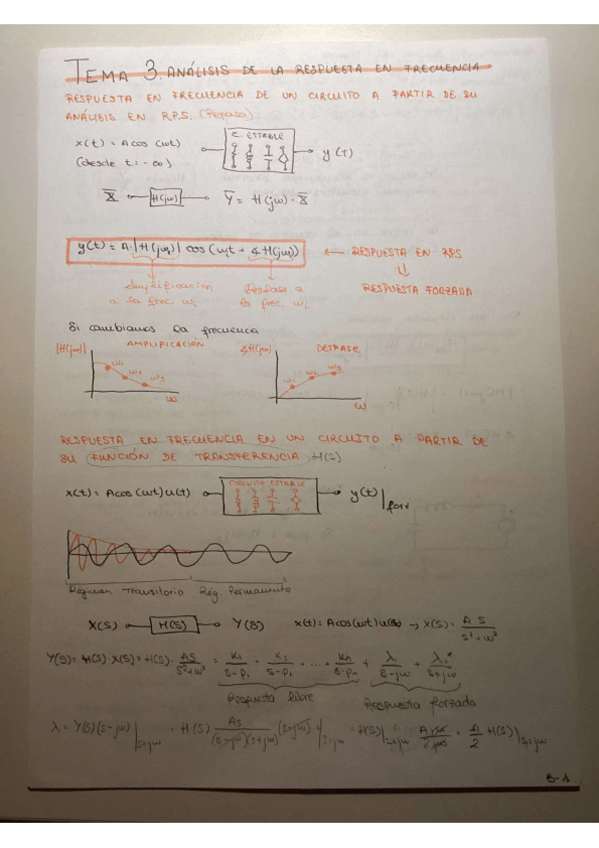 TEMA 3. ANÁLISIS DE LA RESPUESTA EN FRECUENCIA
RESPUESTA EN FRECUENCIA DE UN CIRCUITO A PARTIR DE SU
ANÁLISIS EN R.P.S. (Repaso)
x(t) = A cos (ωt)
(desde t = -∞)
C. ESTABLE
y(t)
X̄ H(jω) Ȳ = H(jω) · X̄
y(t) = A·|H(jωi)| cos(ωit + ∡H(jωi)) ← RESPUESTA EN RPS
⇓
RESPUESTA FORZADA
Amplificación
a la frec. ωi
Desfase a
la frec. ωi
Si cambiamos la frecuencia
|H(jω)| AMPLIFICACIÓN
ω1 ω2 ω3
ω
∡H(jω) DESFASE
ω1 ω2 ω3
ω
RESPUESTA EN FRECUENCIA EN UN CIRCUITO A PARTIR DE
SU FUNCIÓN DE TRANSFERENCIA H(s)
x(t) = A cos (ωt) u(t)
CIRCUITO ESTABLE
y(t)|forz
Régimen Transitorio Rég. Permanente
X(S) H(S) Y(S) x(t) = A cos(ωt) u(t) → X(S) = AS/(S²+ω²)
Y(S) = H(S) · X(S) = H(S) · AS/(S²+ω²) = K1/(S-P1) + K2/(S-P2) + ... + Kn/(S-Pn) + λ/(S-jω) + λ*/(S+jω)
Respuesta libre Respuesta forzada
λ = Y(S)(S-jω)|S=jω = H(S) AS/((S-jω)(S+jω)) (S-jω)|S=jω = H(S)|S=jω Ajω/2jω = A/2 H(S)|S=jω
3-1